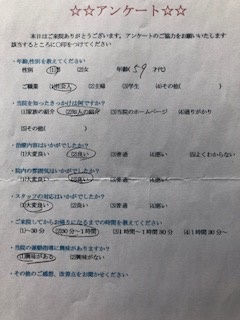 ☆☆アンケート☆☆
本日はご来院ありがとうございます。アンケートのご協力をお願いいたします
該当するところに〇印をつけてください
・年齢,性別を教えてください
性別 (1)男 (2)女 年齢( 59 才代)
ご職業 (1)社会人 (2)主婦 (3)学生 (4)その他( )
・当院を知ったきっかけは何ですか?
(1)家族の紹介 (2)知人の紹介 (3)当院のホームページ (4)通りがかり
(5)その他( )
・治療内容はいかがでしたか?
(1)大変良い (2)良い (3)普通 (4)悪い (5)よくわからない
・院内の雰囲気はいかがでしたか?
(1)大変良い (2)良い (3)普通 (4)悪い
・スタッフの対応はいかがでしたか?
(1)大変良い (2)良い (3)普通 (4)悪い
・ご来院してからお帰りになるまでの時間を教えてください
(1)~30分 (2)30分~1時間 (3)1時間~1時間30分 (4)1時間30分~
・当院の運動指導に興味がありますか?
(1)興味がある (2)興味がない
・その他のご感想、改善点をお聞かせください